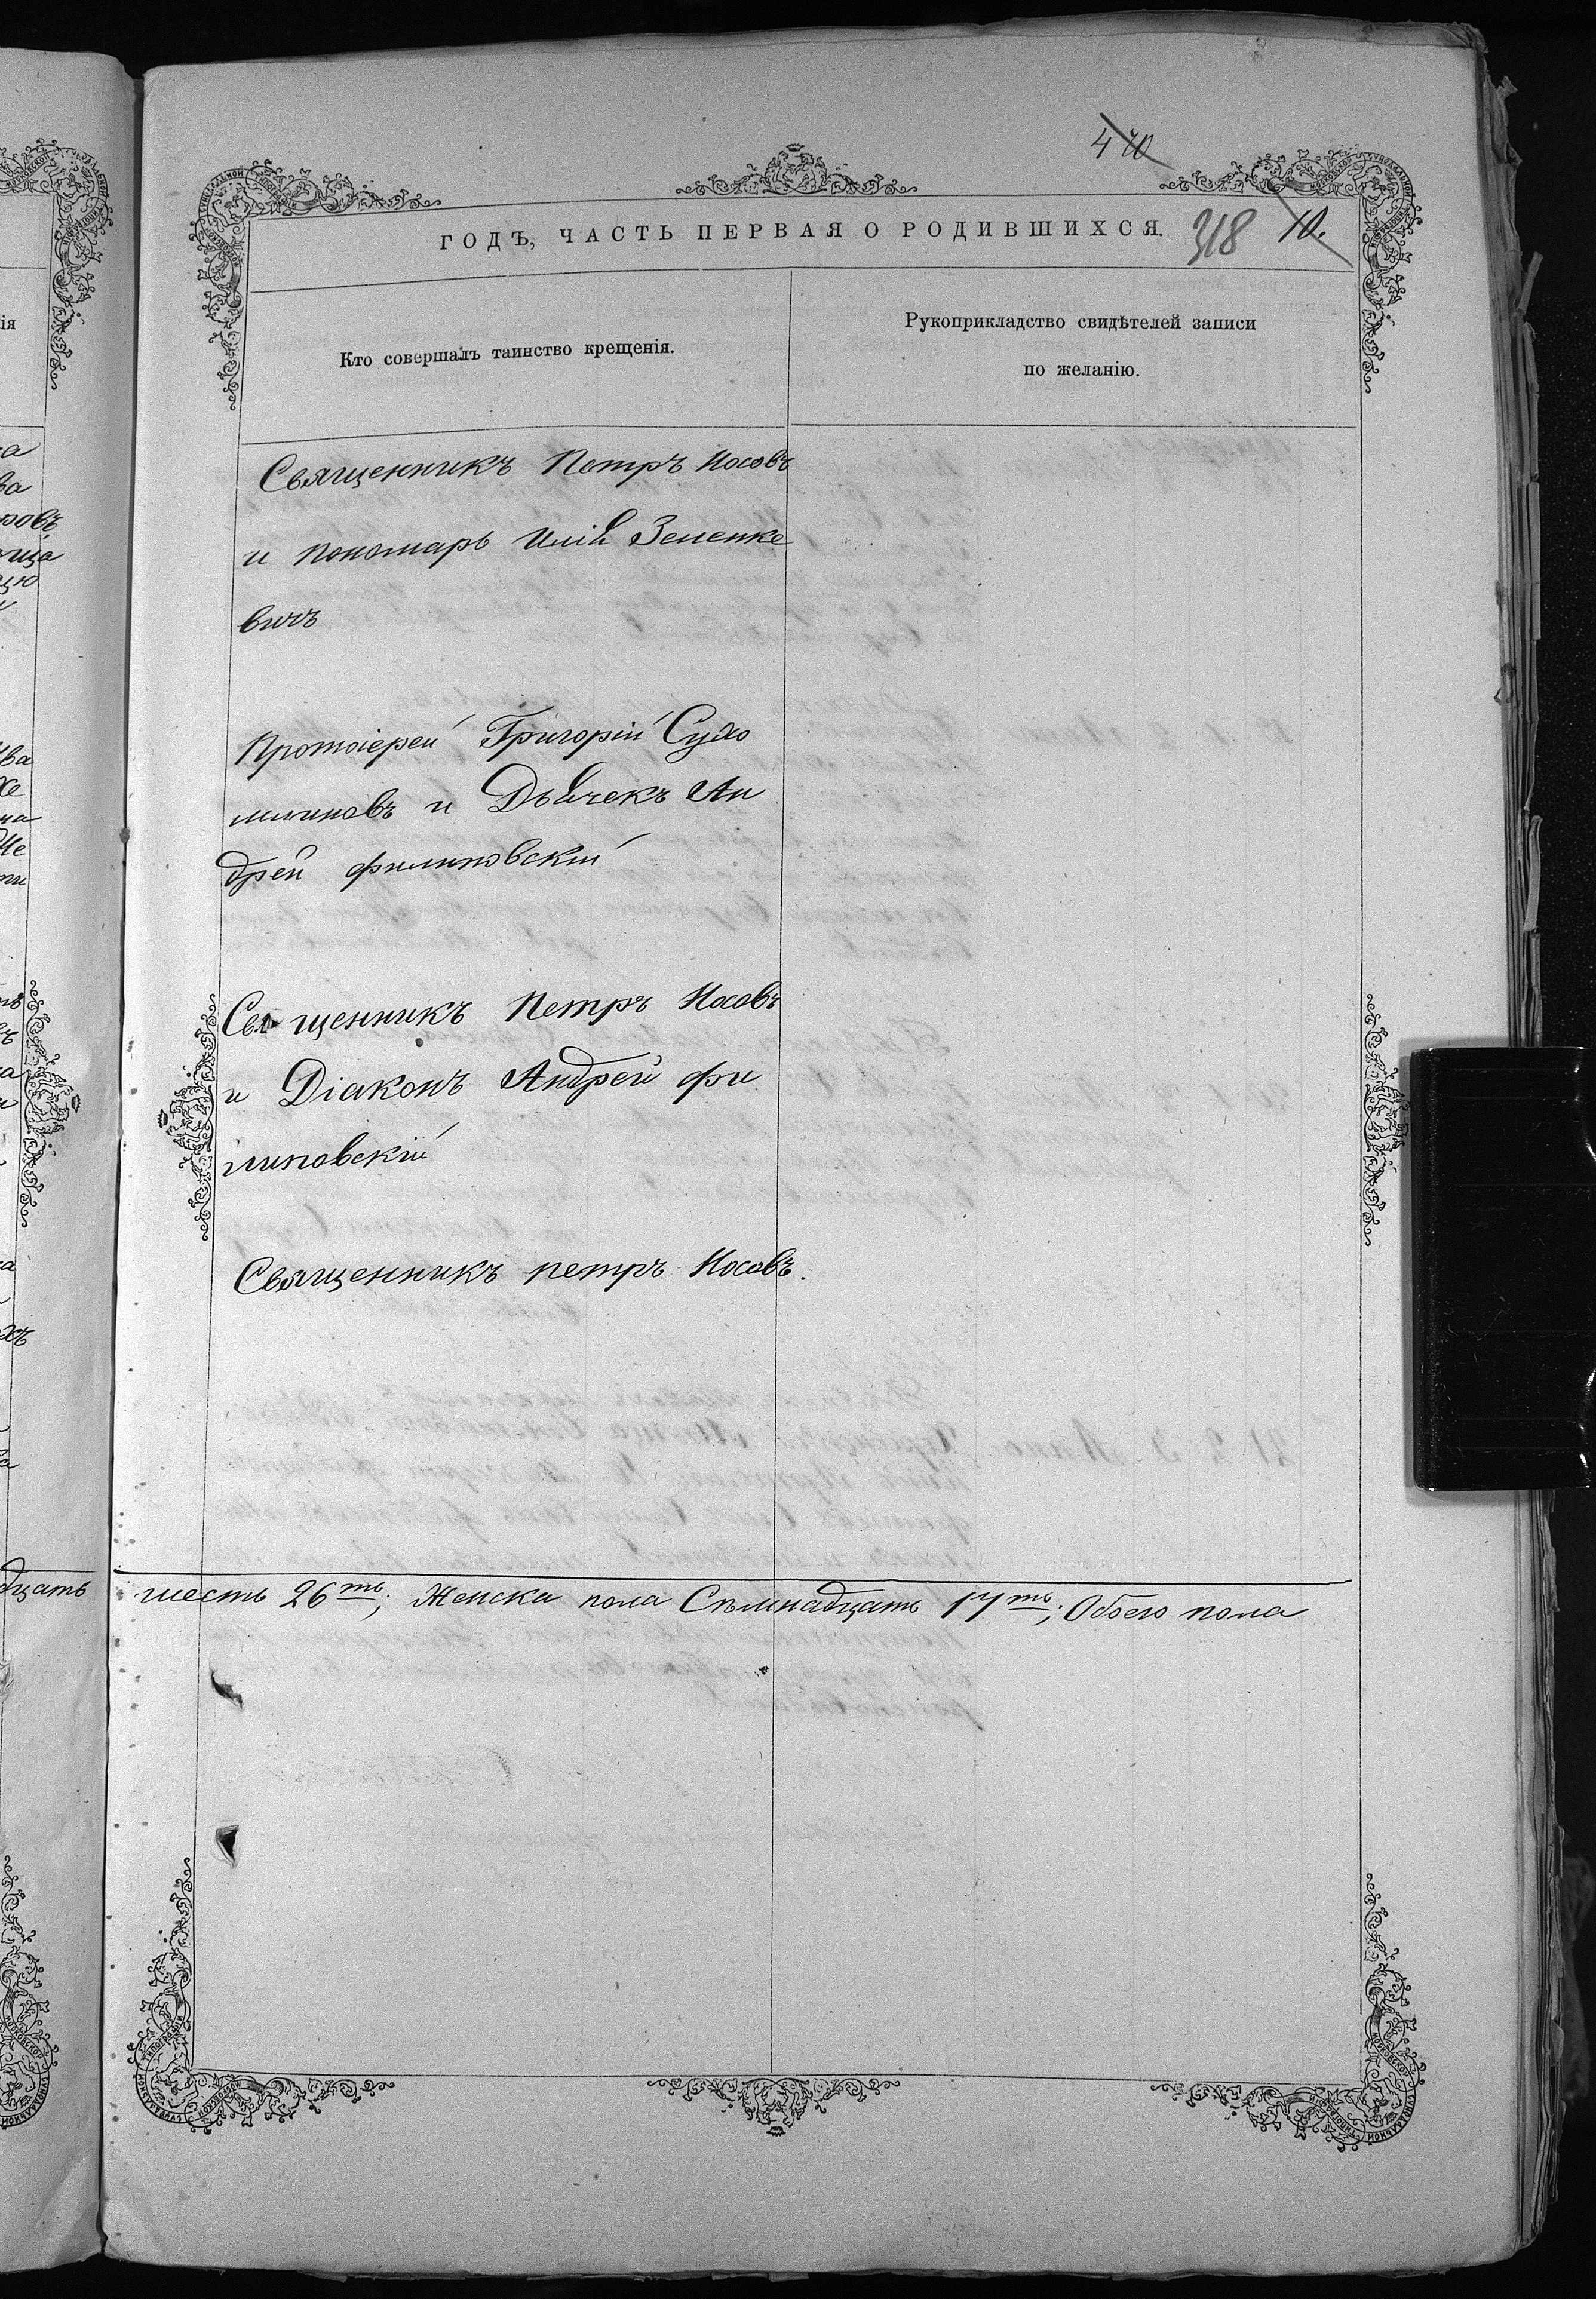 470
ГОДЪ, ЧАСТЬ ПЕРВАЯ О РОДИВШИХСЯ.
318 10.
Кто совершалъ таинство крещенія.
Рукоприкладство свидѣтелей записи
по желанію.
Священникъ Петръ Носовъ
и пономарь Илія Зеленке
вичъ
Протоіерей Григорій Сухо
млиновъ и Дьячекъ Ан
дрей филиповскій
Священникъ Петръ Носовъ
и Діаконъ Андрей фи
липовскій
Священникъ петръ Носовъ.
шесть 26ть; Женска пола Семнадцать 17ть; Обоего пола